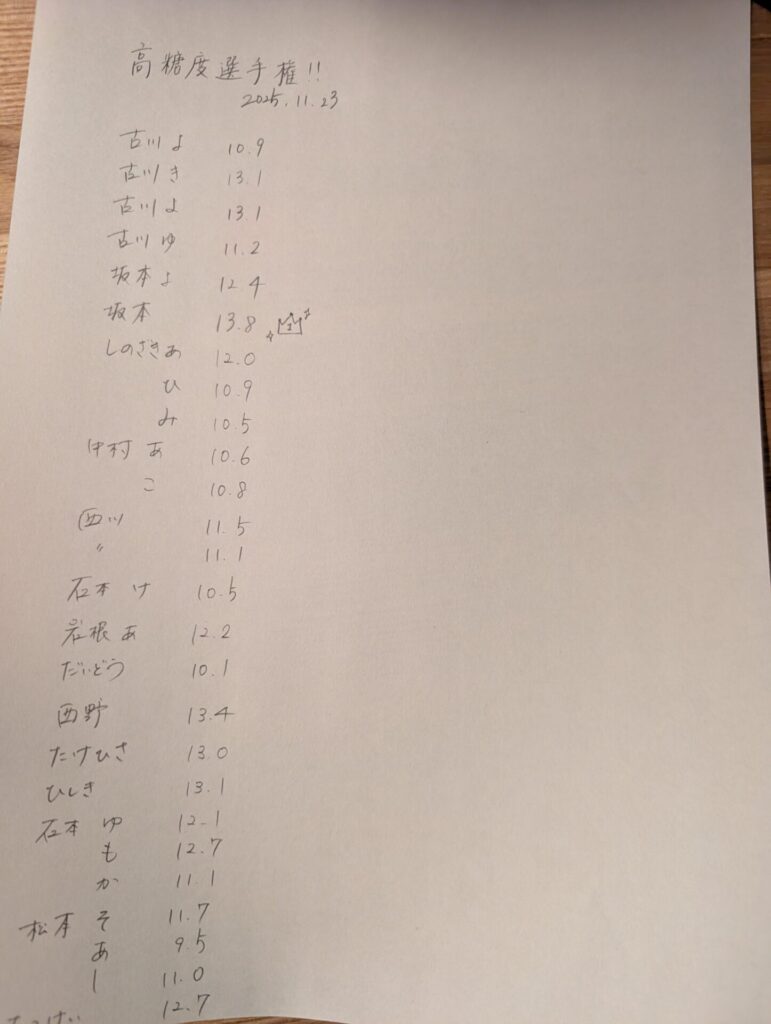 高糖度選手権!!
2025.11.23
古川よ 10.9
古川き 13.1
古川よ 13.1
古川ゆ 11.2
坂本よ 12.4
坂本 13.8
しのざきあ 12.0
ひ 10.9
み 10.5
中村 あ 10.6
こ 10.8
西川 11.5
〃 11.1
石本 け 10.5
岩根 あ 12.2
だいどう 10.1
西野 13.4
たけひさ 13.0
ひしき 13.1
石本 ゆ 12.1
も 12.7
か 11.1
松本 そ 11.7
あ 9.5
し 11.0
12.7